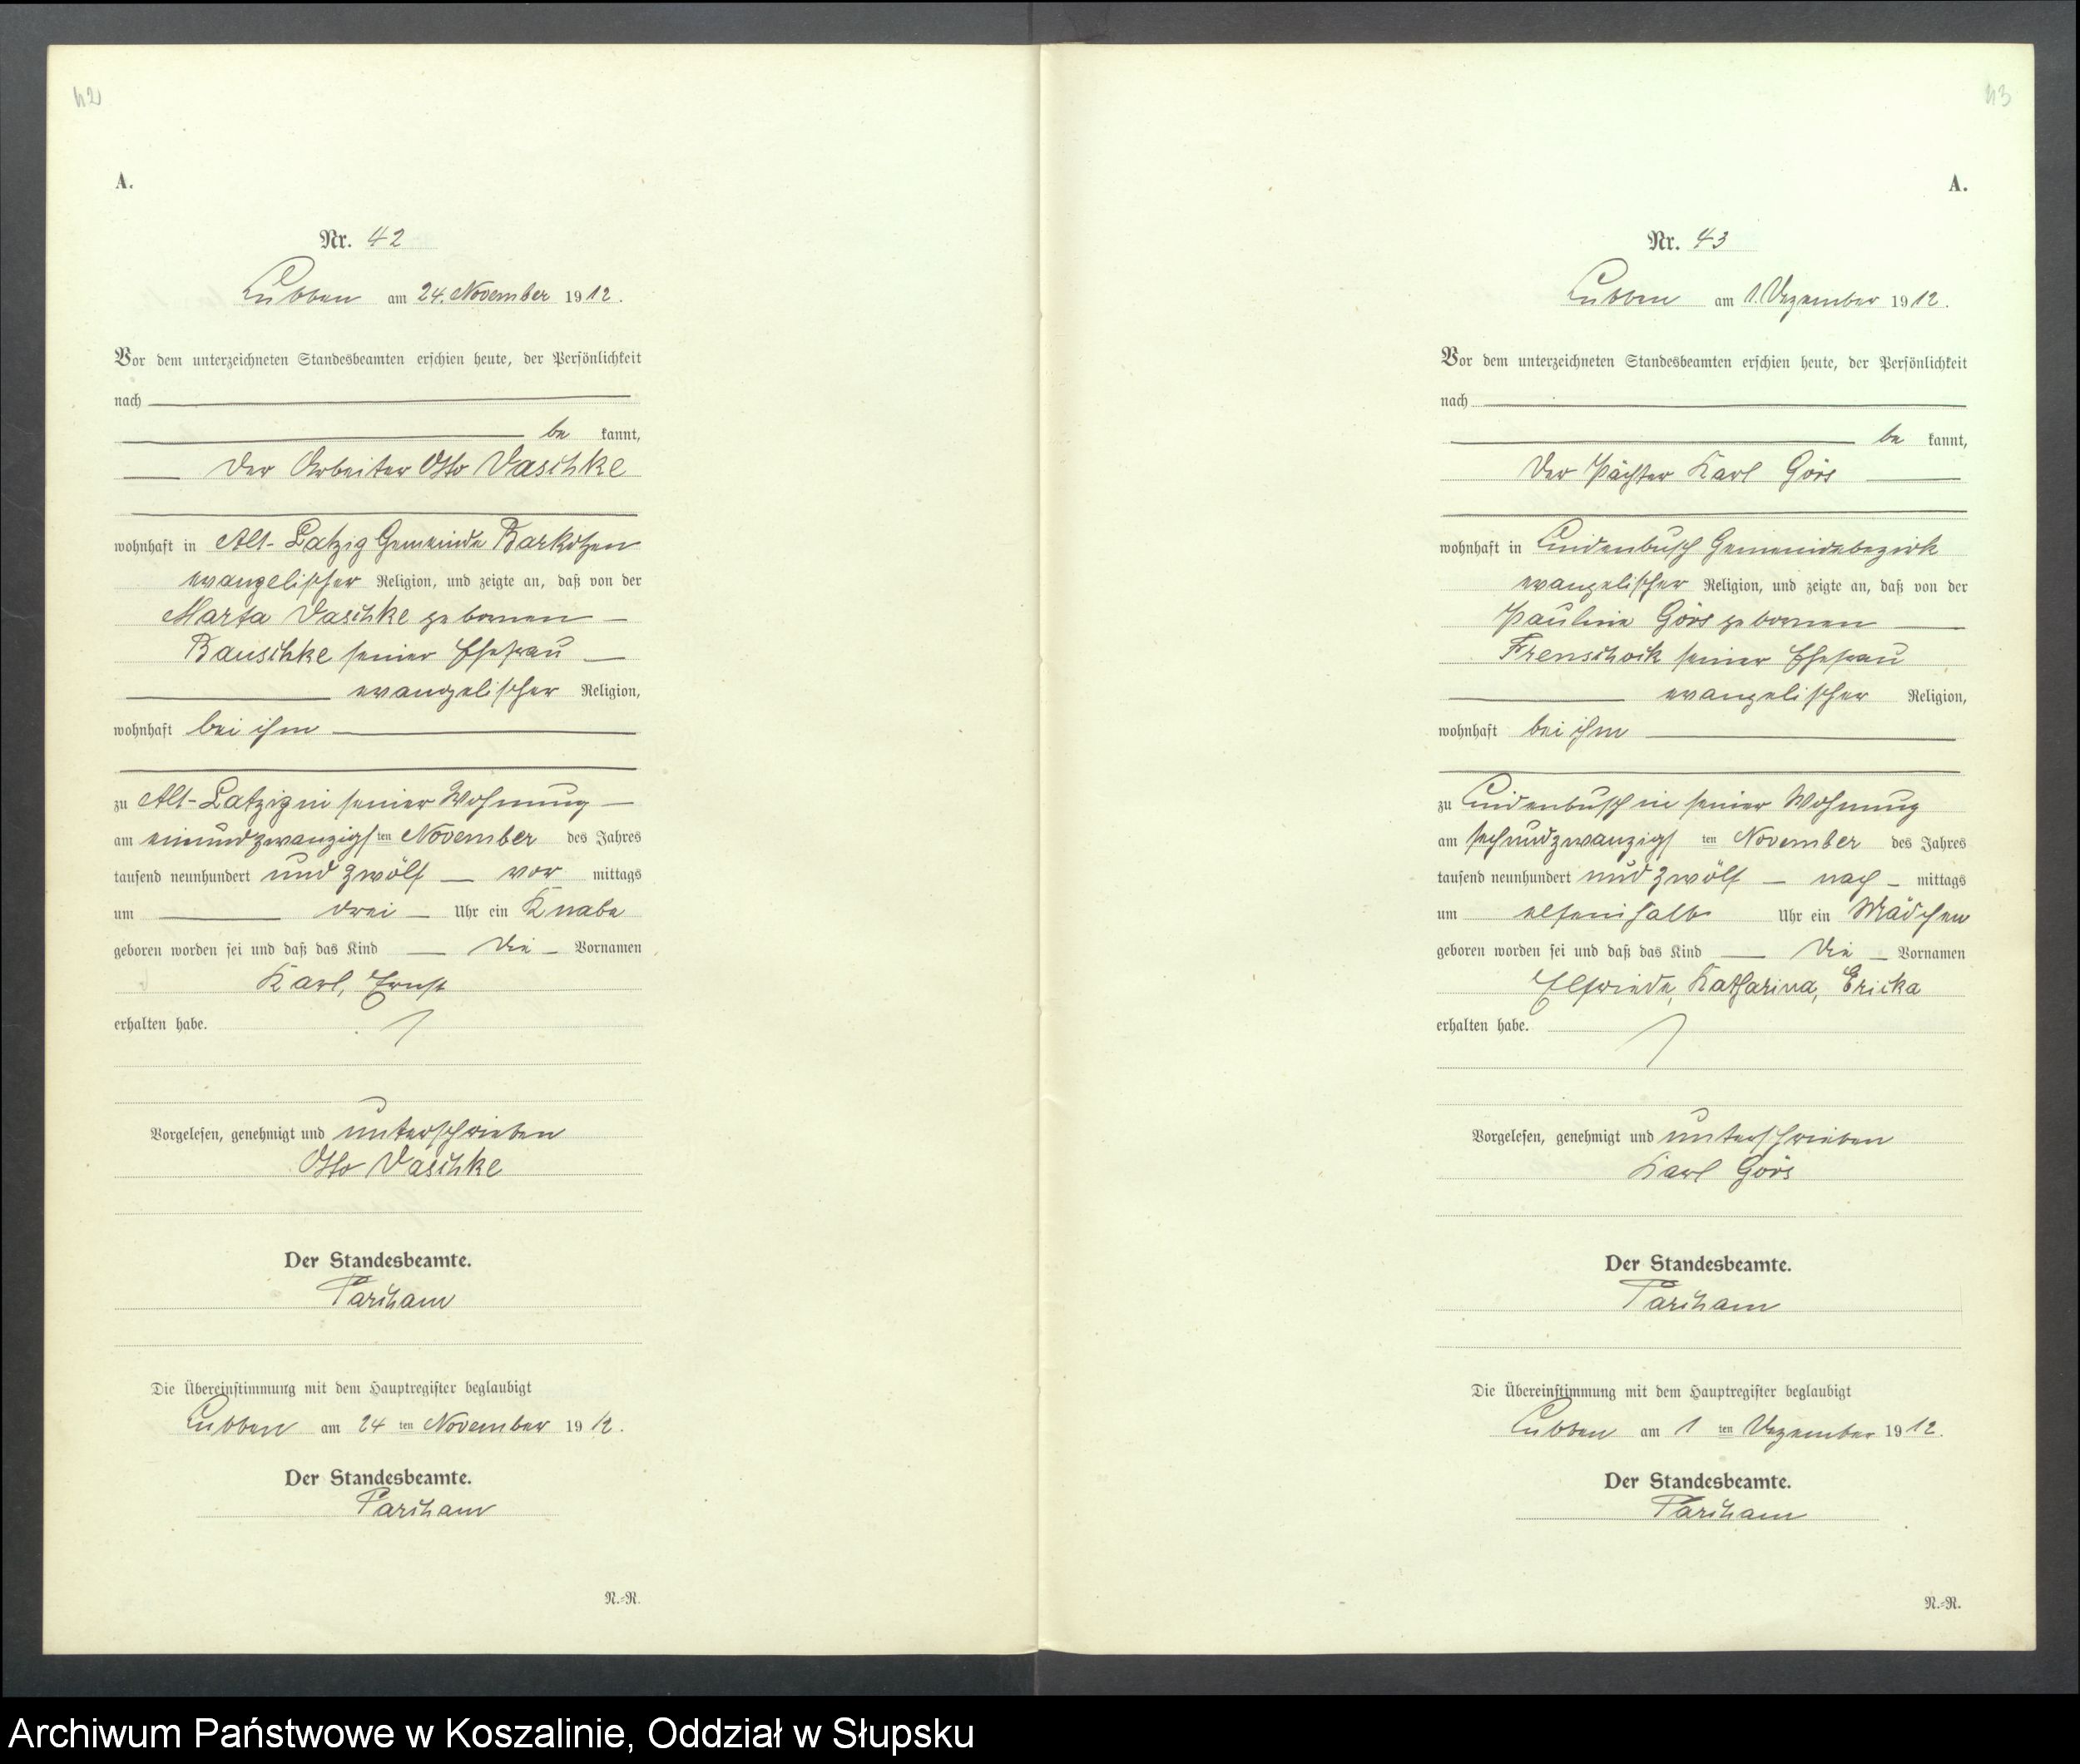 42
A.
Nr. 42
Lubben am 24. November 1912.
Vor dem unterzeichneten Standesbeamten erschien heute, der Persönlichkeit
nach
be kannt,
der Arbeiter Otto Daschke
wohnhaft in Alt-Latzig Gemeinde Barkotzen
evangelischer Religion, und zeigte an, daß von der
Marta Daschke geborenen
Bauschke seiner Ehefrau
evangelischer Religion,
wohnhaft bei ihm
zu Alt-Latzig in seiner Wohnung
am einundzwanzigsten November des Jahres
tausend neunhundert und zwölf vor mittags
um drei Uhr ein Knabe
geboren worden sei und daß das Kind die Vornamen
Karl, Ernst
erhalten habe.
Vorgelesen, genehmigt und unterschrieben
Otto Daschke
Der Standesbeamte.
Parcham
Die Übereinstimmung mit dem Hauptregister beglaubigt
Lubben am 24 ten November 1912.
Der Standesbeamte.
Parcham
N.-R.
43
A.
Nr. 43
Lubben am 1. Dezember 1912.
Vor dem unterzeichneten Standesbeamten erschien heute, der Persönlichkeit
nach
be kannt,
der Pächter Karl Görs
wohnhaft in Lindenbusch Gemeindebezirk
evangelischer Religion, und zeigte an, daß von der
Pauline Görs geborenen
Frenschock seiner Ehefrau
evangelischer Religion,
wohnhaft bei ihm
zu Lindenbusch in seiner Wohnung
am sechsundzwanzigsten November des Jahres
tausend neunhundert und zwölf nach mittags
um elfeinhalb Uhr ein Mädchen
geboren worden sei und daß das Kind die Vornamen
Elfriede, Katharina, Ericka
erhalten habe.
Vorgelesen, genehmigt und unterschrieben
Karl Görs
Der Standesbeamte.
Parcham
Die Übereinstimmung mit dem Hauptregister beglaubigt
Lubben am 1 ten Dezember 1912.
Der Standesbeamte.
Parcham
N.-R.
Archiwum Państwowe w Koszalinie, Oddział w Słupsku